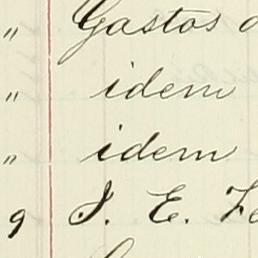 " Gastos
" idem
" idem
9 J. E.